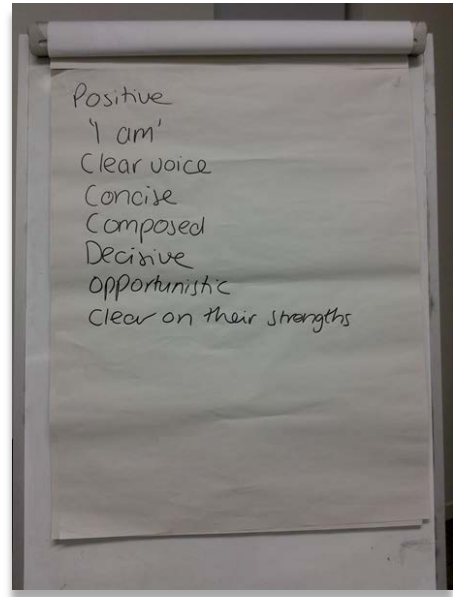 Positive
'I am'
Clear voice
Concise
Composed
Decisive
opportunistic
Clear on their strengths